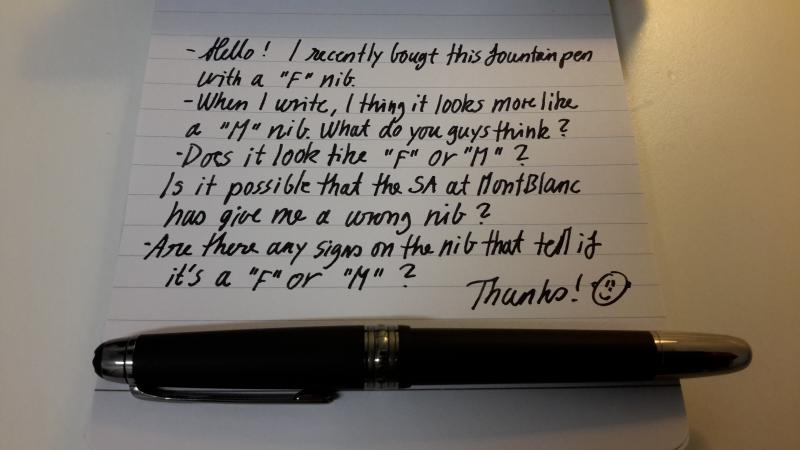 - Hello! I recently bougt this fountain pen
with a "F" nib.
- When I write, I thing it looks more like
a "M" nib. What do you guys think?
- Does it look like "F" or "M"?
Is it possible that the SA at MontBlanc
has give me a wrong nib?
- Are there any signs on the nib that tell if
it's a "F" or "M"?
Thanks!